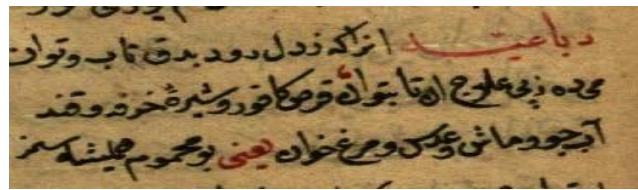 رباعیه انرا که ز دل رود بدق تاب و توان
می ده ز پی علاج ان تا بتوان قرص کافور و شیرهٔ خرفه و قند
آب جو و ماش و عدس و مرغ خوان یعنی بو محموم همیشه